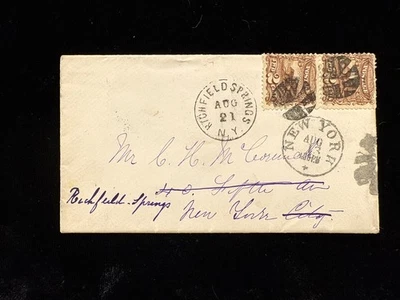 RICHFIELD SPRINGS
AUG
21
N.Y.
NEW YORK
AUG
Mr C. H. McCormick
Fifth Av
Richfield Springs
New York City